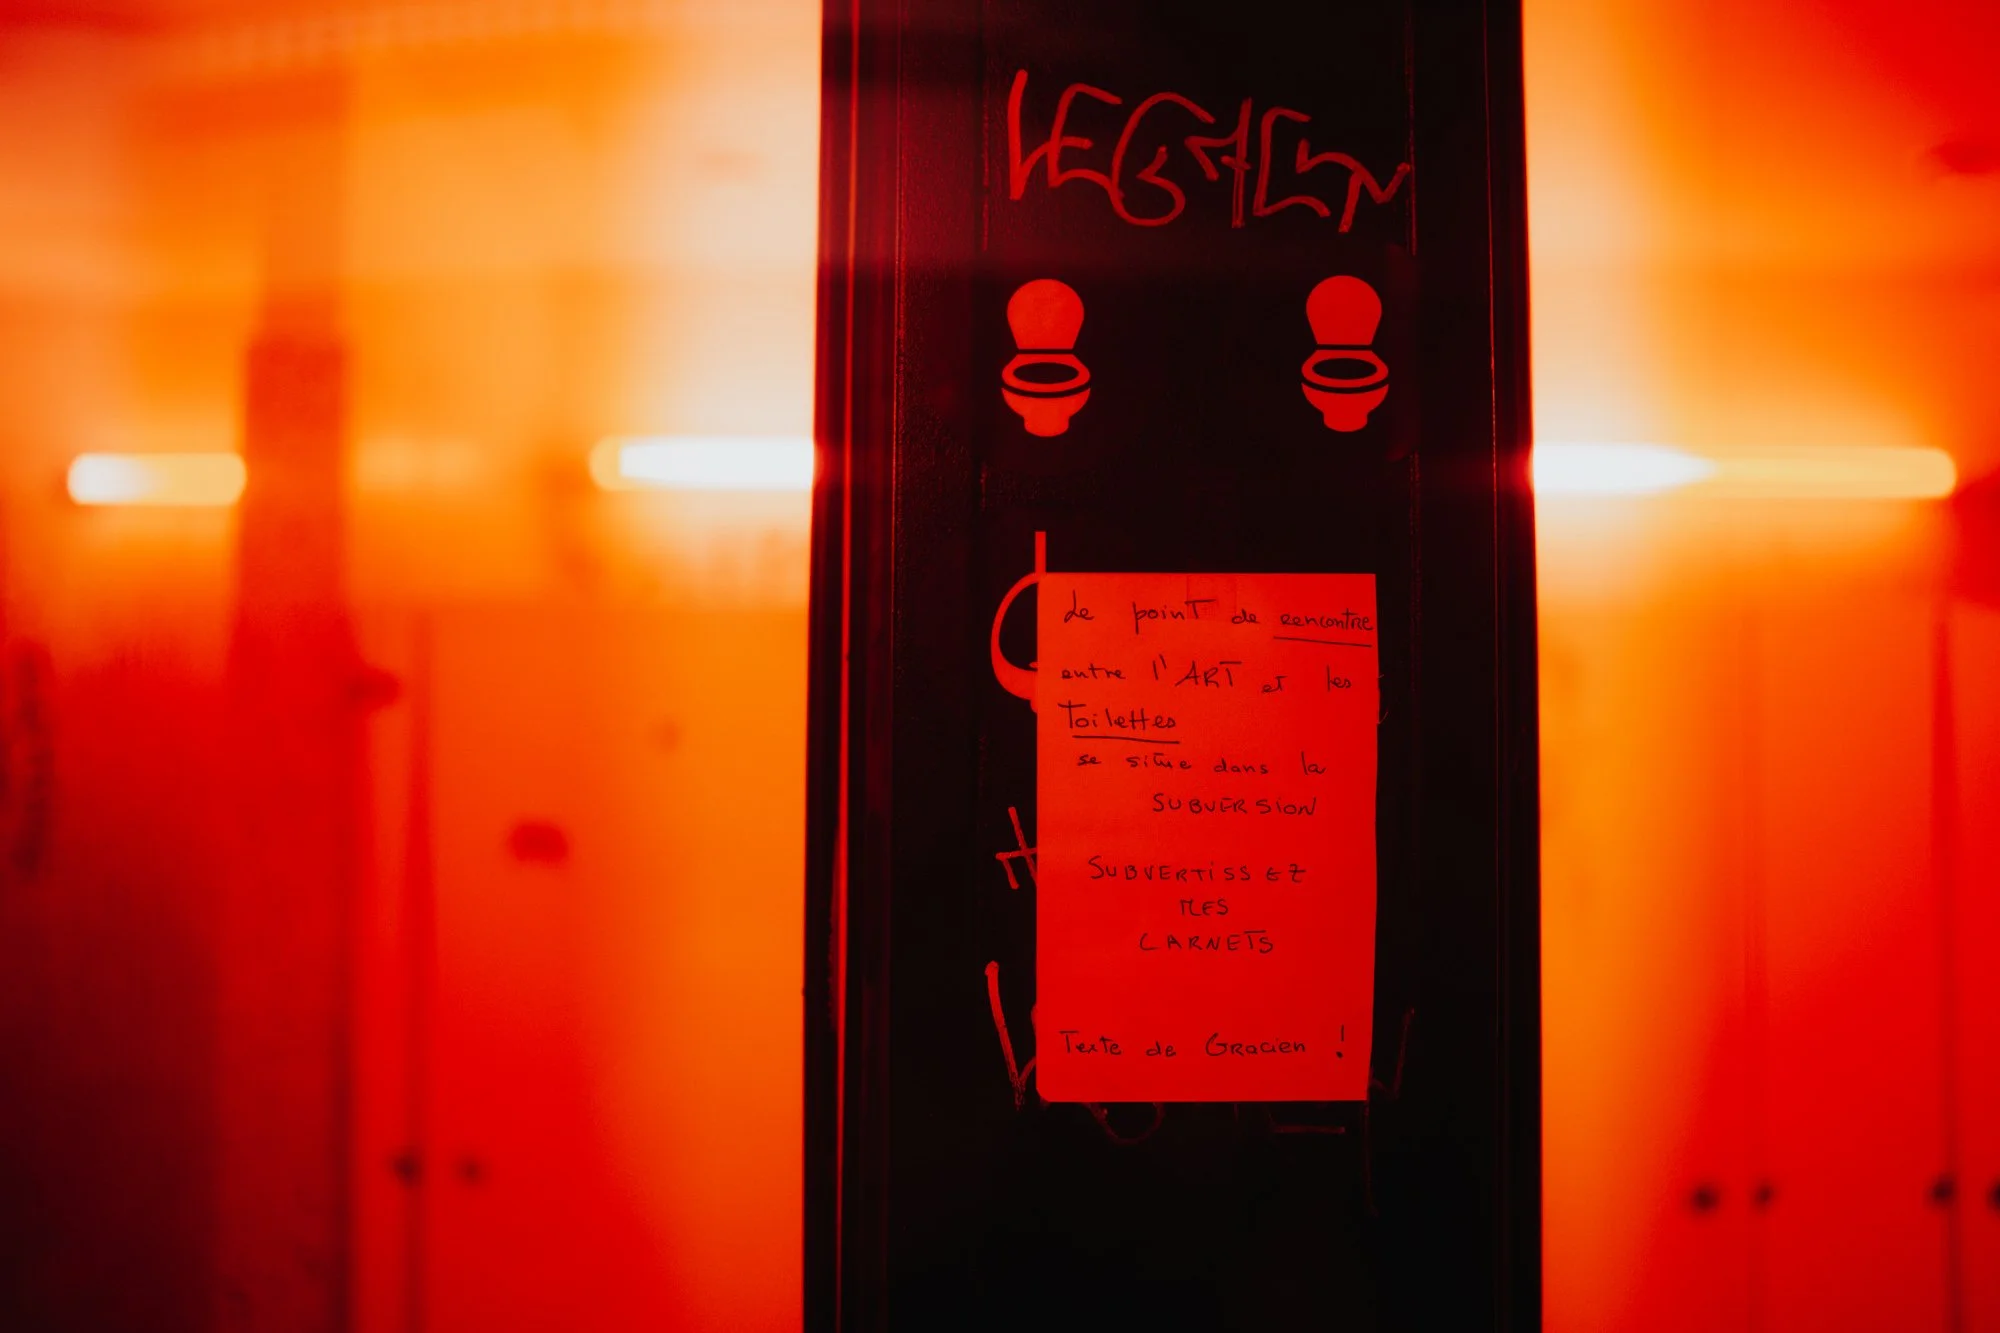 Le point de rencontre
entre l'ART et les
Toilettes
se situe dans la
SUBVERSION
SUBVERTISSEZ
MES
CARNETS
Texte de Gracien !